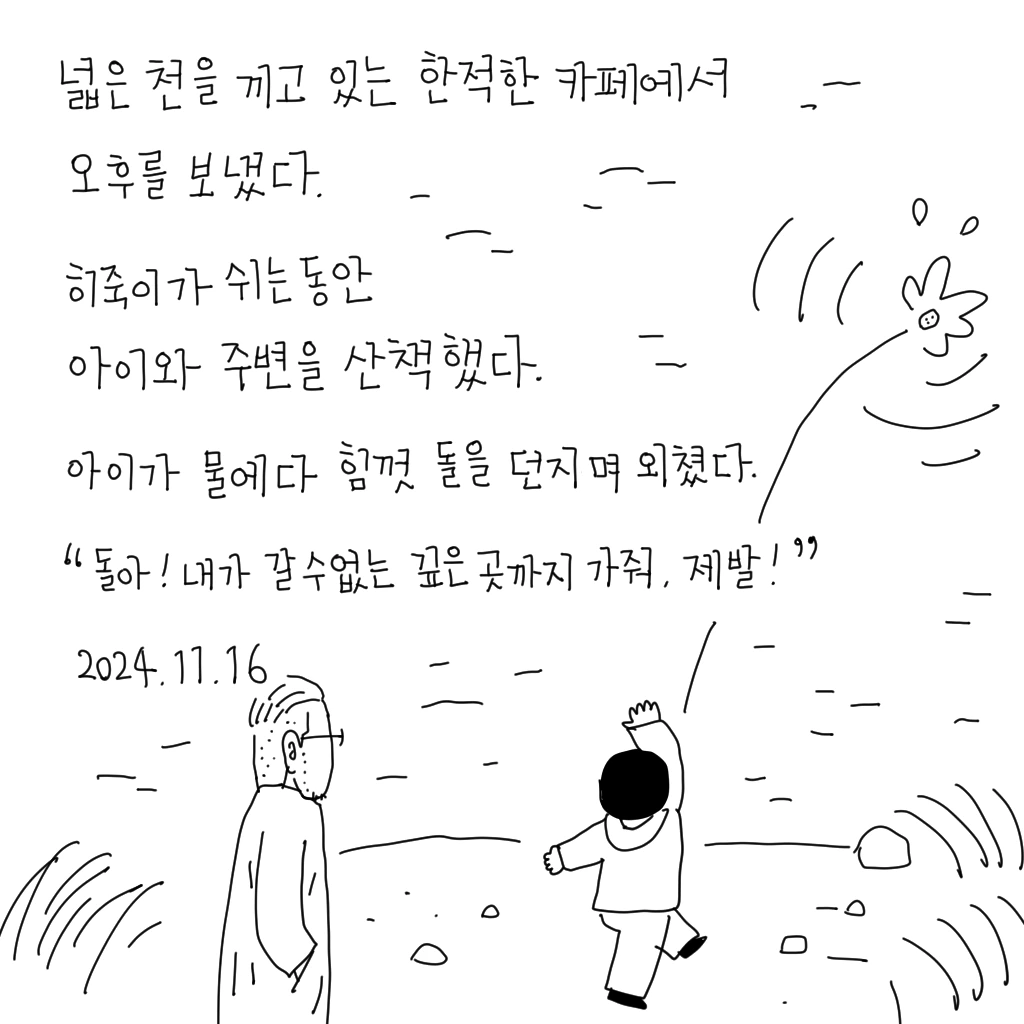 넓은 천을 끼고 있는 한적한 카페에서
오후를 보냈다.
히죽이가 쉬는 동안
아이와 주변을 산책했다.
아이가 물에다 힘껏 돌을 던지며 외쳤다.
“돌아! 내가 갈 수 없는 깊은 곳까지 가줘, 제발!”
2024.11.16